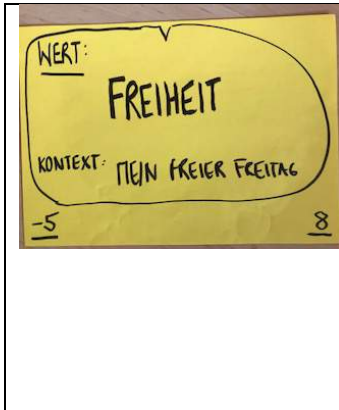 WERT:
FREIHEIT
KONTEXT: MEIN FREIER FREITAG
-5 8